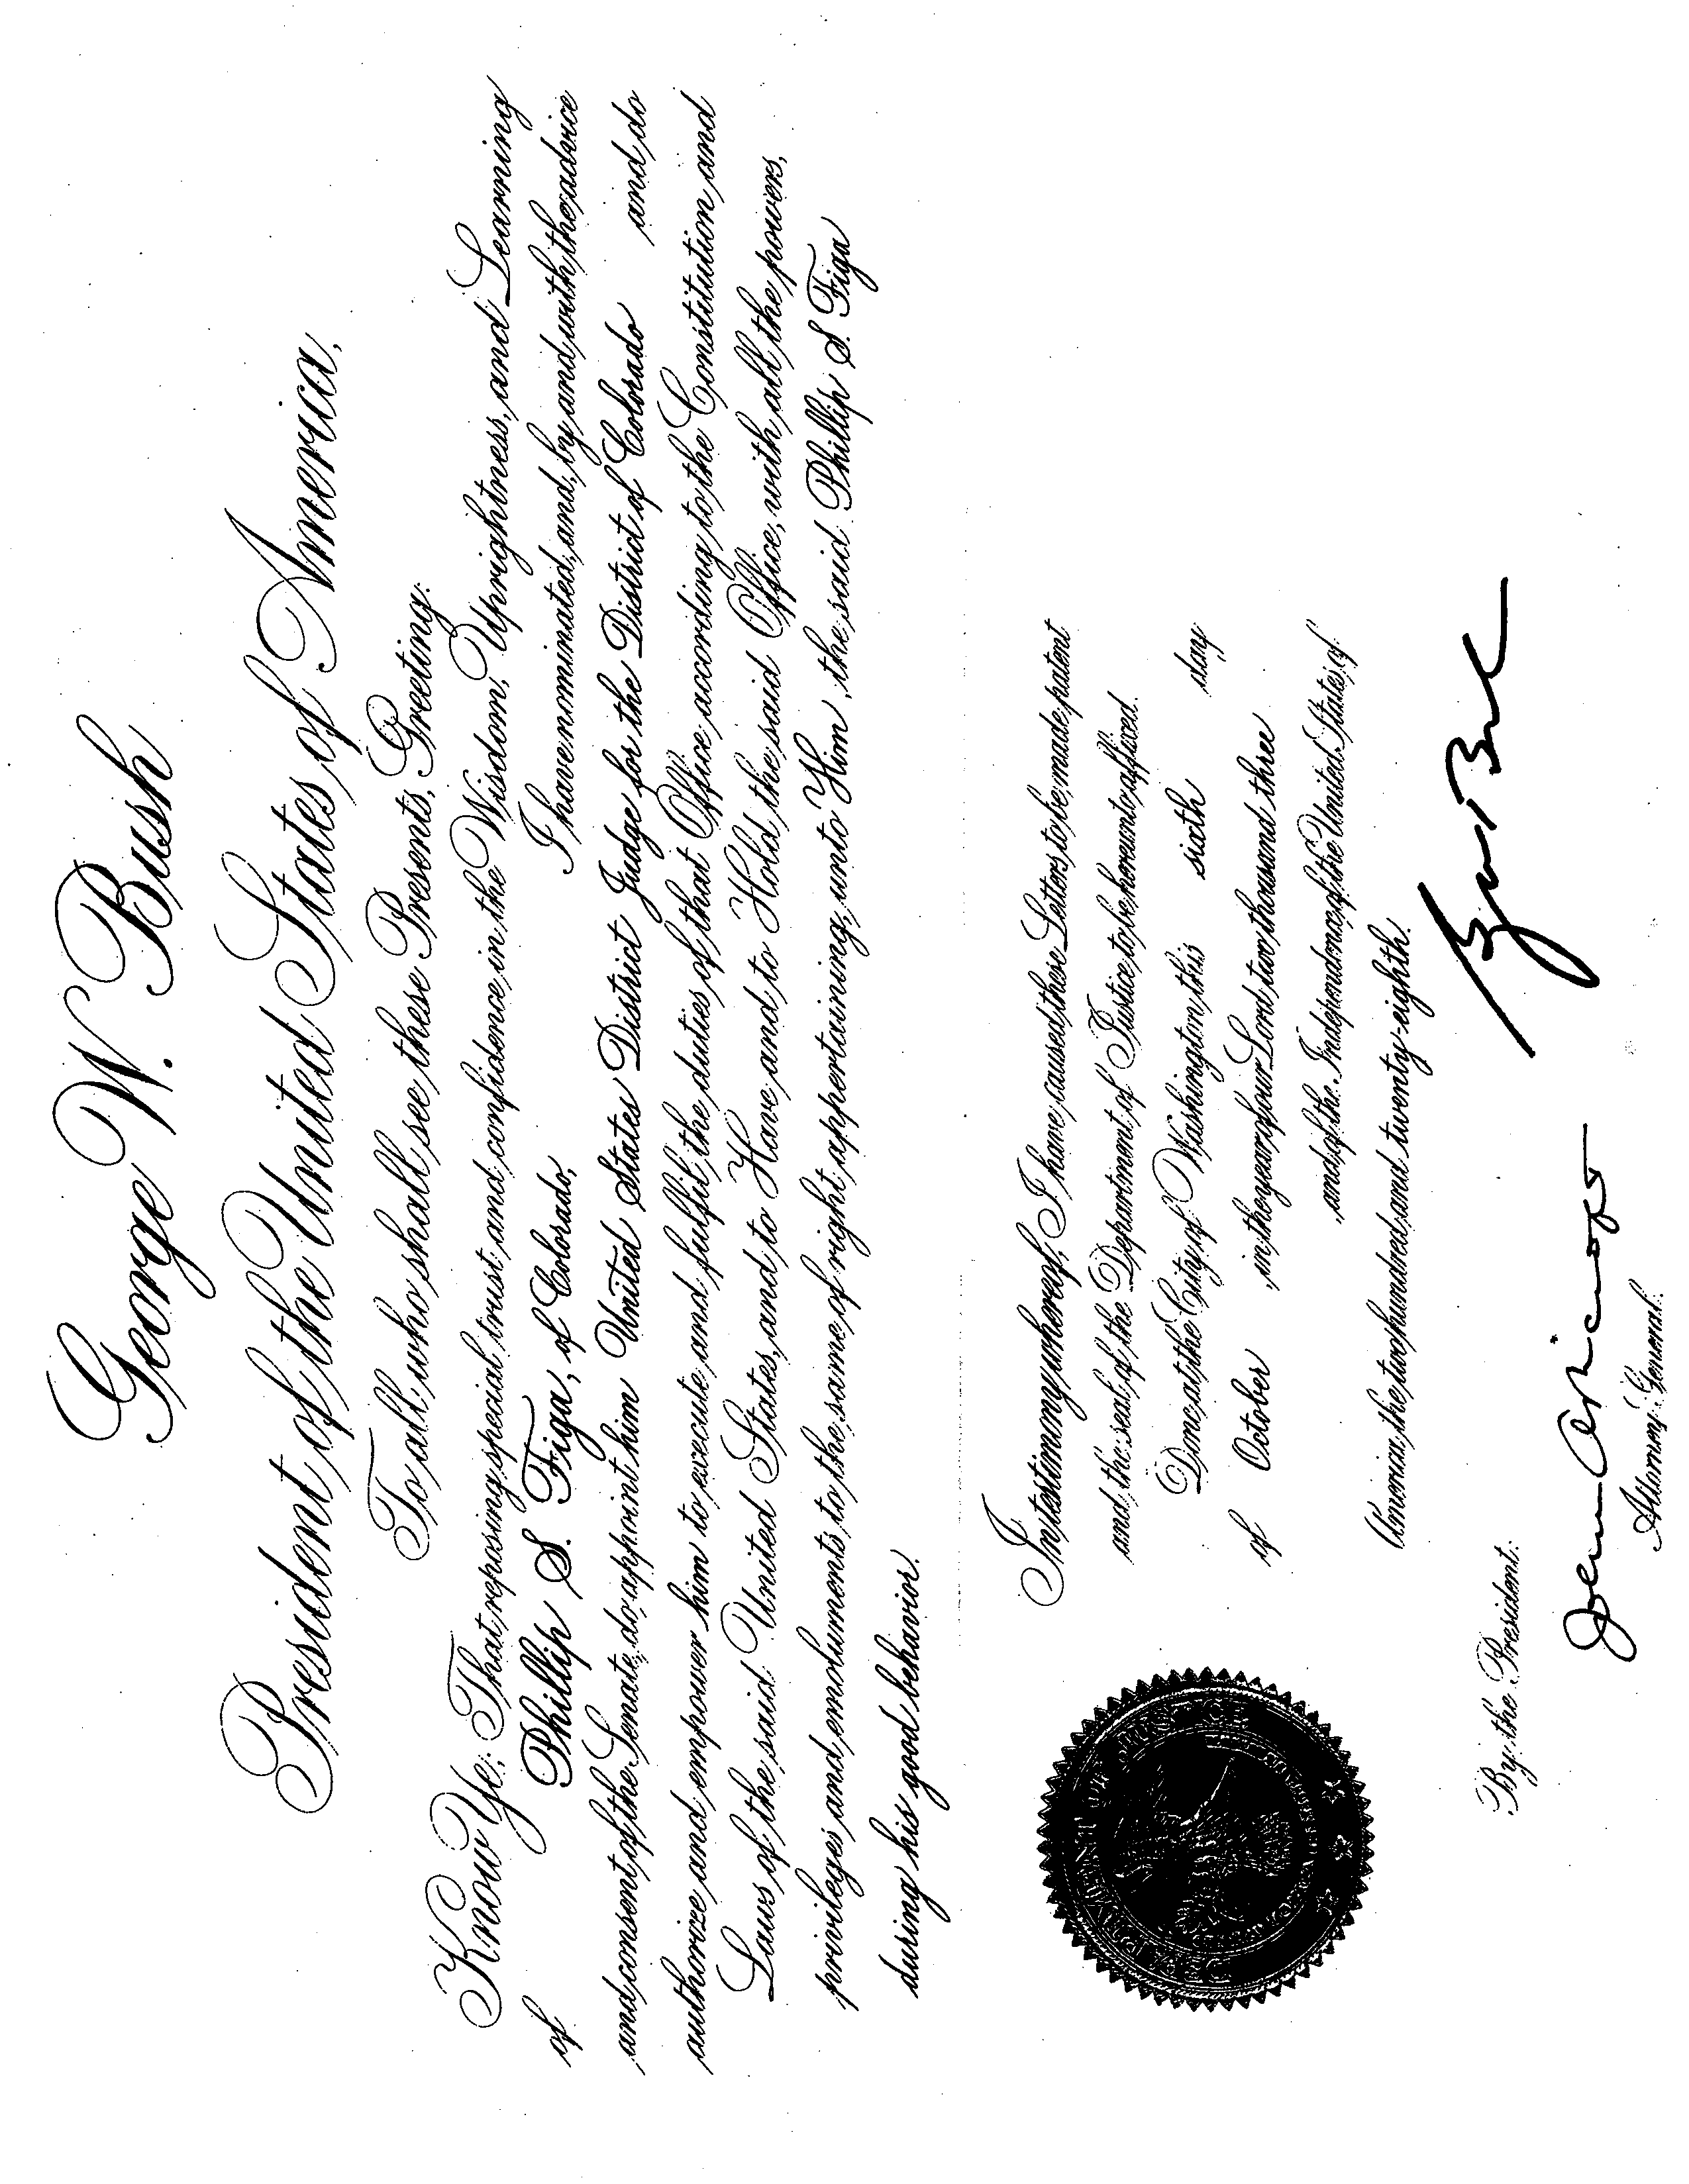 George W. Bush
President of the United States of America,
To all who shall see these Presents, Greeting:
Know Ye; That reposing special trust and confidence in the Wisdom, Uprightness, and Learning
of Phillip S. Figa, of Colorado, I have nominated, and, by and with the advice
and consent of the Senate, do appoint him United States District Judge for the District of Colorado and do
authorize and empower him to execute and fulfil the duties of that Office according to the Constitution and
Laws of the said United States, and to Have and to Hold the said Office, with all the powers,
privileges and emoluments to the same of right appertaining, unto Him, the said Phillip S. Figa
during his good behavior.
In testimony whereof, I have caused these Letters to be made patent
and the seal of the Department of Justice to be hereunto affixed.
Done at the City of Washington, this sixth day
of October in the year of our Lord two thousand three
and of the Independence of the United States of
America the two hundred and twenty-eighth.
By the President:
Attorney General.